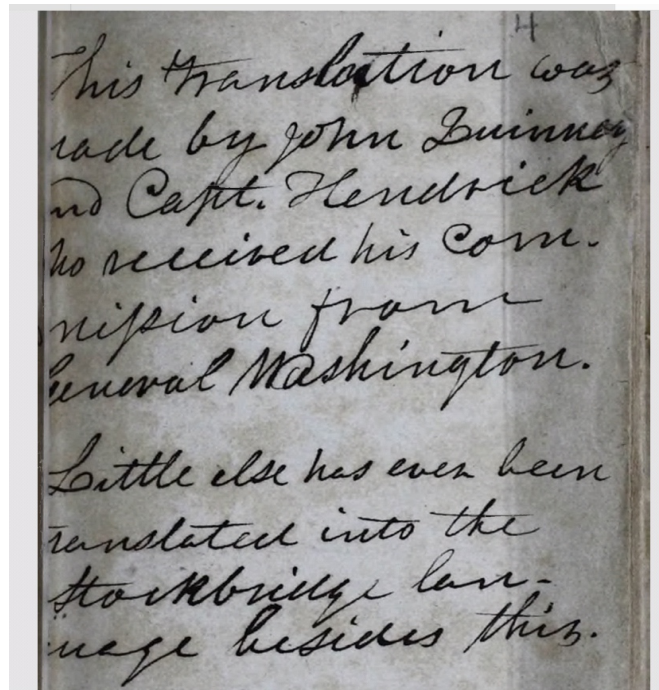 4
This translation was
made by John Quinney
and Capt. Hendrick
who received his Com-
mission from
General Washington.
Little else has ever been
translated into the
Stockbridge lan-
guage besides this.